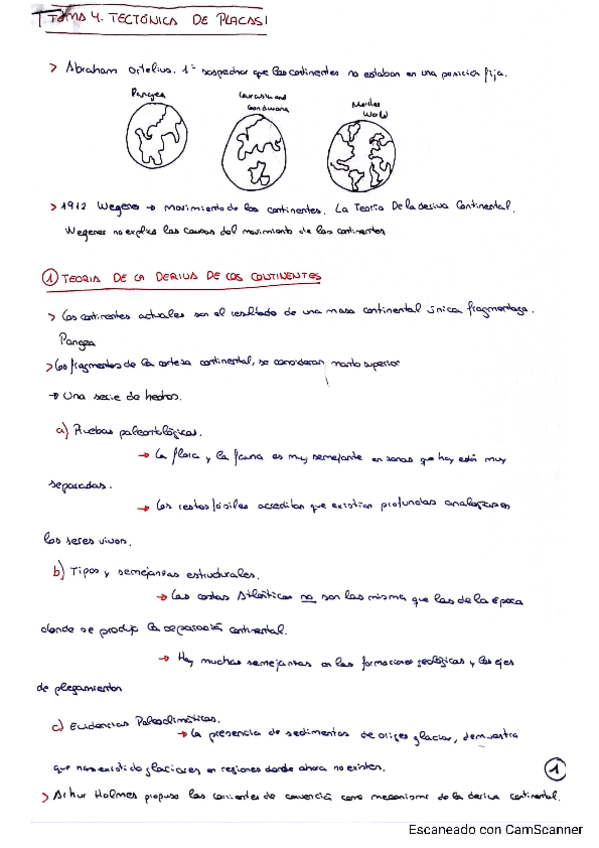 Tema 4. TECTÓNICA DE PLACAS I
> Abraham Ortelius. 1º sospechar que los continentes no estaban en una posición fija.
Pangea
Laurasia and
Gondwana
Modern
World
> 1912 Wegener → Movimiento de los continentes. La Teoría De la deriva Continental.
Wegener no explica las causas del movimiento de los continentes
① TEORIA DE LA DERIVA DE LOS CONTINENTES
> Los continentes actuales son el resultado de una masa continental única fragmentaga.
Pangea
> Los fragmentos de la corteza continental, se consideran manto superior
→ Una serie de hechos.
a) Pruebas paleontológicas.
→ La flora y la fauna es muy semejante en zonas que hoy están muy
separadas.
→ Los restos fósiles acreditan que existían profundas analogías en
los seres vivos.
b) Tipos y semejanzas estructurales.
→ Las costas Atlánticas no son las misma que las de la época
donde se produjo la separación continental.
→ Hay muchas semejanzas en las formaciones geológicas y los ejes
de plegamientos
c) Evidencias Paleoclimáticas.
→ La presencia de sedimentos de origen glaciar, demuestra
que han existido glaciares en regiones donde ahora no existen.
①
> Arthur Holmes propuso las corrientes de convección como mecanismo de la deriva continental.
Escaneado con CamScanner